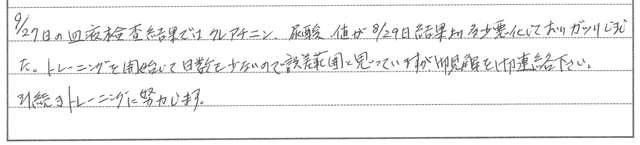 9/27日の血液検査結果ではクレアチニン、尿酸、値が8/29日結果より多少悪化しておりガッツリしまし
た。トレーニングを開始して日数も少ないので誤差範囲と思っていますが御見解を御連絡下さい。
引続きトレーニングに努力します。